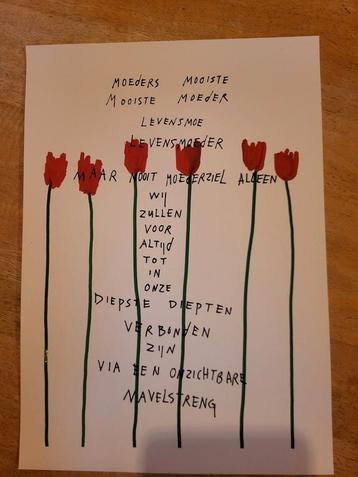 MOEDERS MOOISTE
MOOISTE MOEDER
LEVENSMOE
LEVENSMOEDER
MAAR NOOIT MOEDERZIEL ALLEEN
WIJ
ZULLEN
VOOR
ALTIJD
TOT
IN
ONZE
DIEPSTE DIEPTEN
VERBONDEN
ZIJN
VIA EEN ONZICHTBARE
NAVELSTRENG